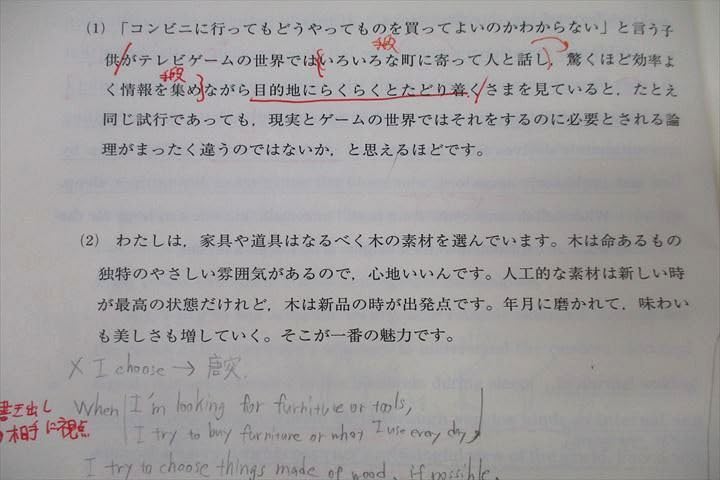 (1) 「コンビニに行ってもどうやってものを買ってよいのかわからない」と言う子
手段
供がテレビゲームの世界ではいろいろな町に寄って人と話し，驚くほど効率よ
手段
く情報を集めながら目的地にらくらくとたどり着くさまを見ていると，たとえ
同じ試行であっても，現実とゲームの世界ではそれをするのに必要とされる論
理がまったく違うのではないか，と思えるほどです。
(2) わたしは，家具や道具はなるべく木の素材を選んでいます。木は命あるもの
独特のやさしい雰囲気があるので，心地いいんです。人工的な素材は新しい時
が最高の状態だけれど，木は新品の時が出発点です。年月に磨かれて，味わい
も美しさも増していく。そこが一番の魅力です。
× I choose → 唐突.
書き出し
相手に視点
When I'm looking for furniture or tools,
I try to buy furniture or what I use every day,
I try to choose things made of wood, if possible.